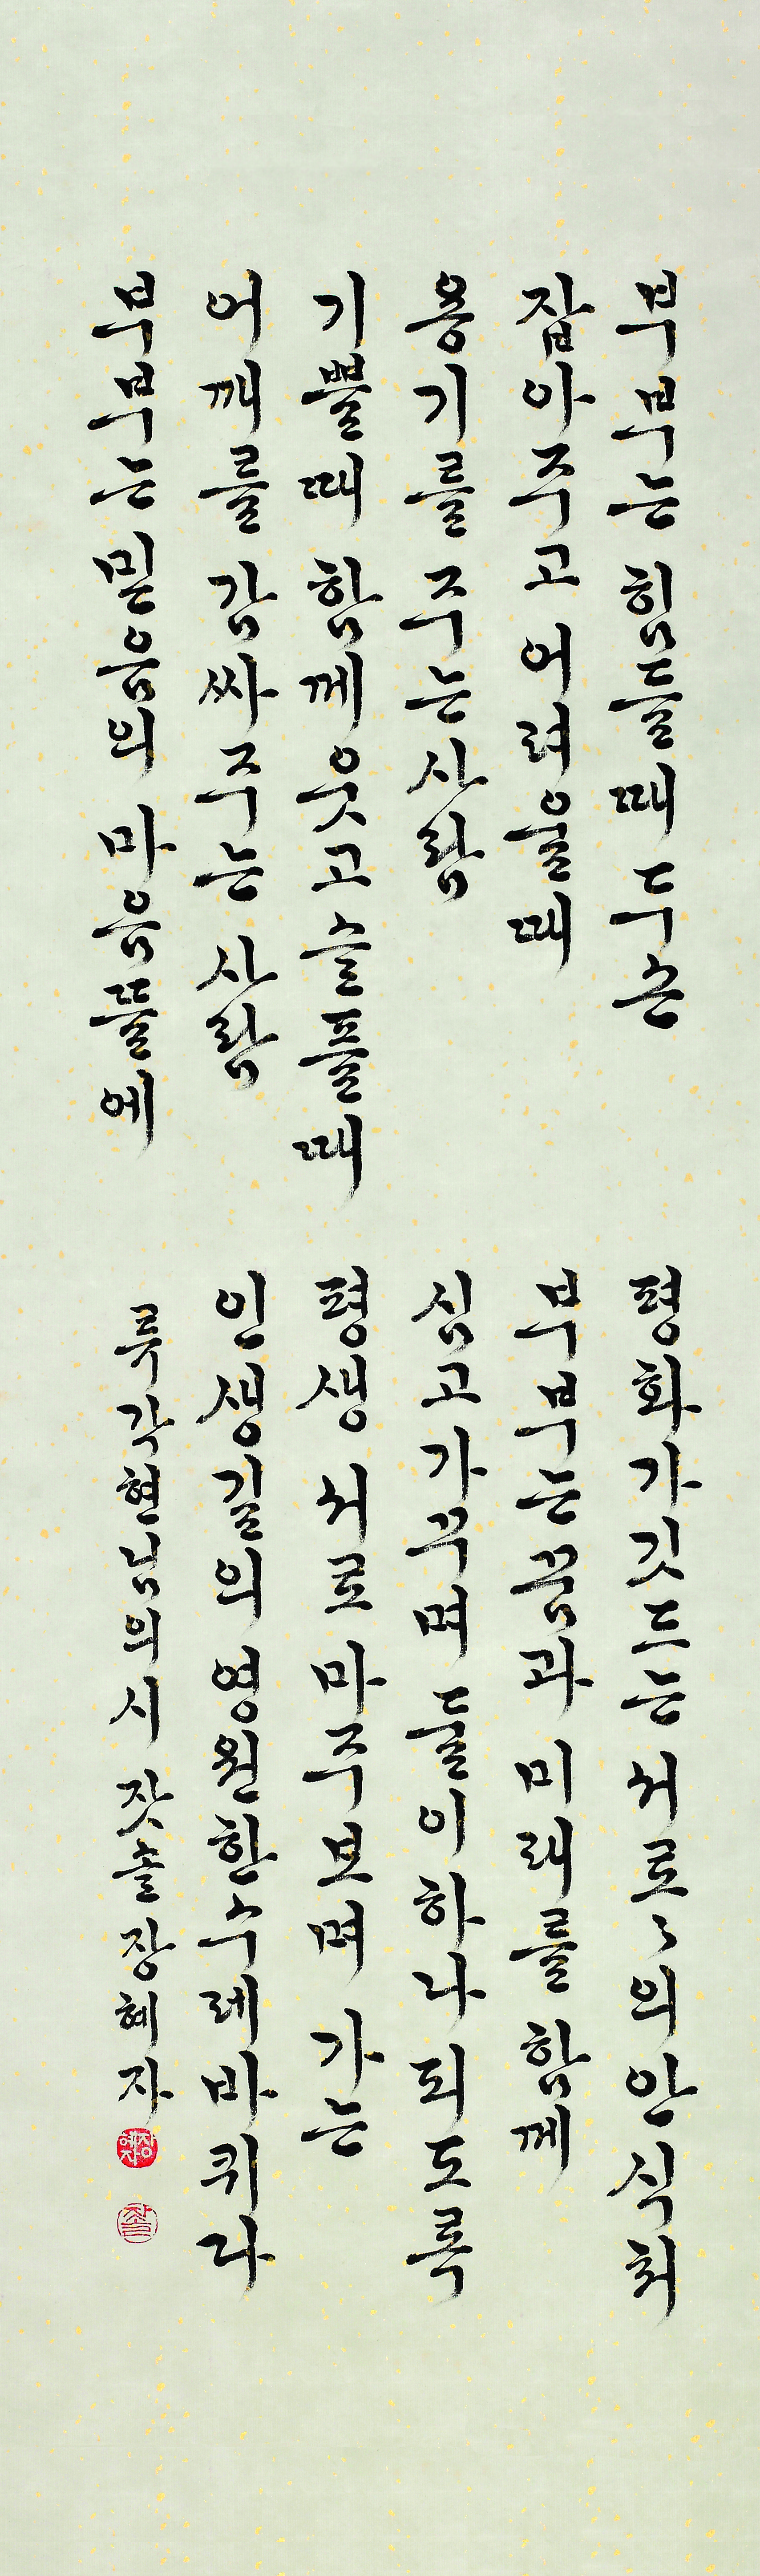 부부는 힘들때 두손
잡아주고 어려울때
용기를 주는 사람
기쁠때 함께 웃고 슬플때
어깨를 감싸주는 사람
부부는 믿음의 마음뜰에
평화가 깃드는 서로〻의 안식처
부부는 꿈과 미래를 함께
심고 가꾸며 둘이 하나 되도록
평생 서로 마주보며 가는
인생길의 영원한 수레바퀴다
류각현님의 시 잣솔 장혜자
장혜자
잣솔